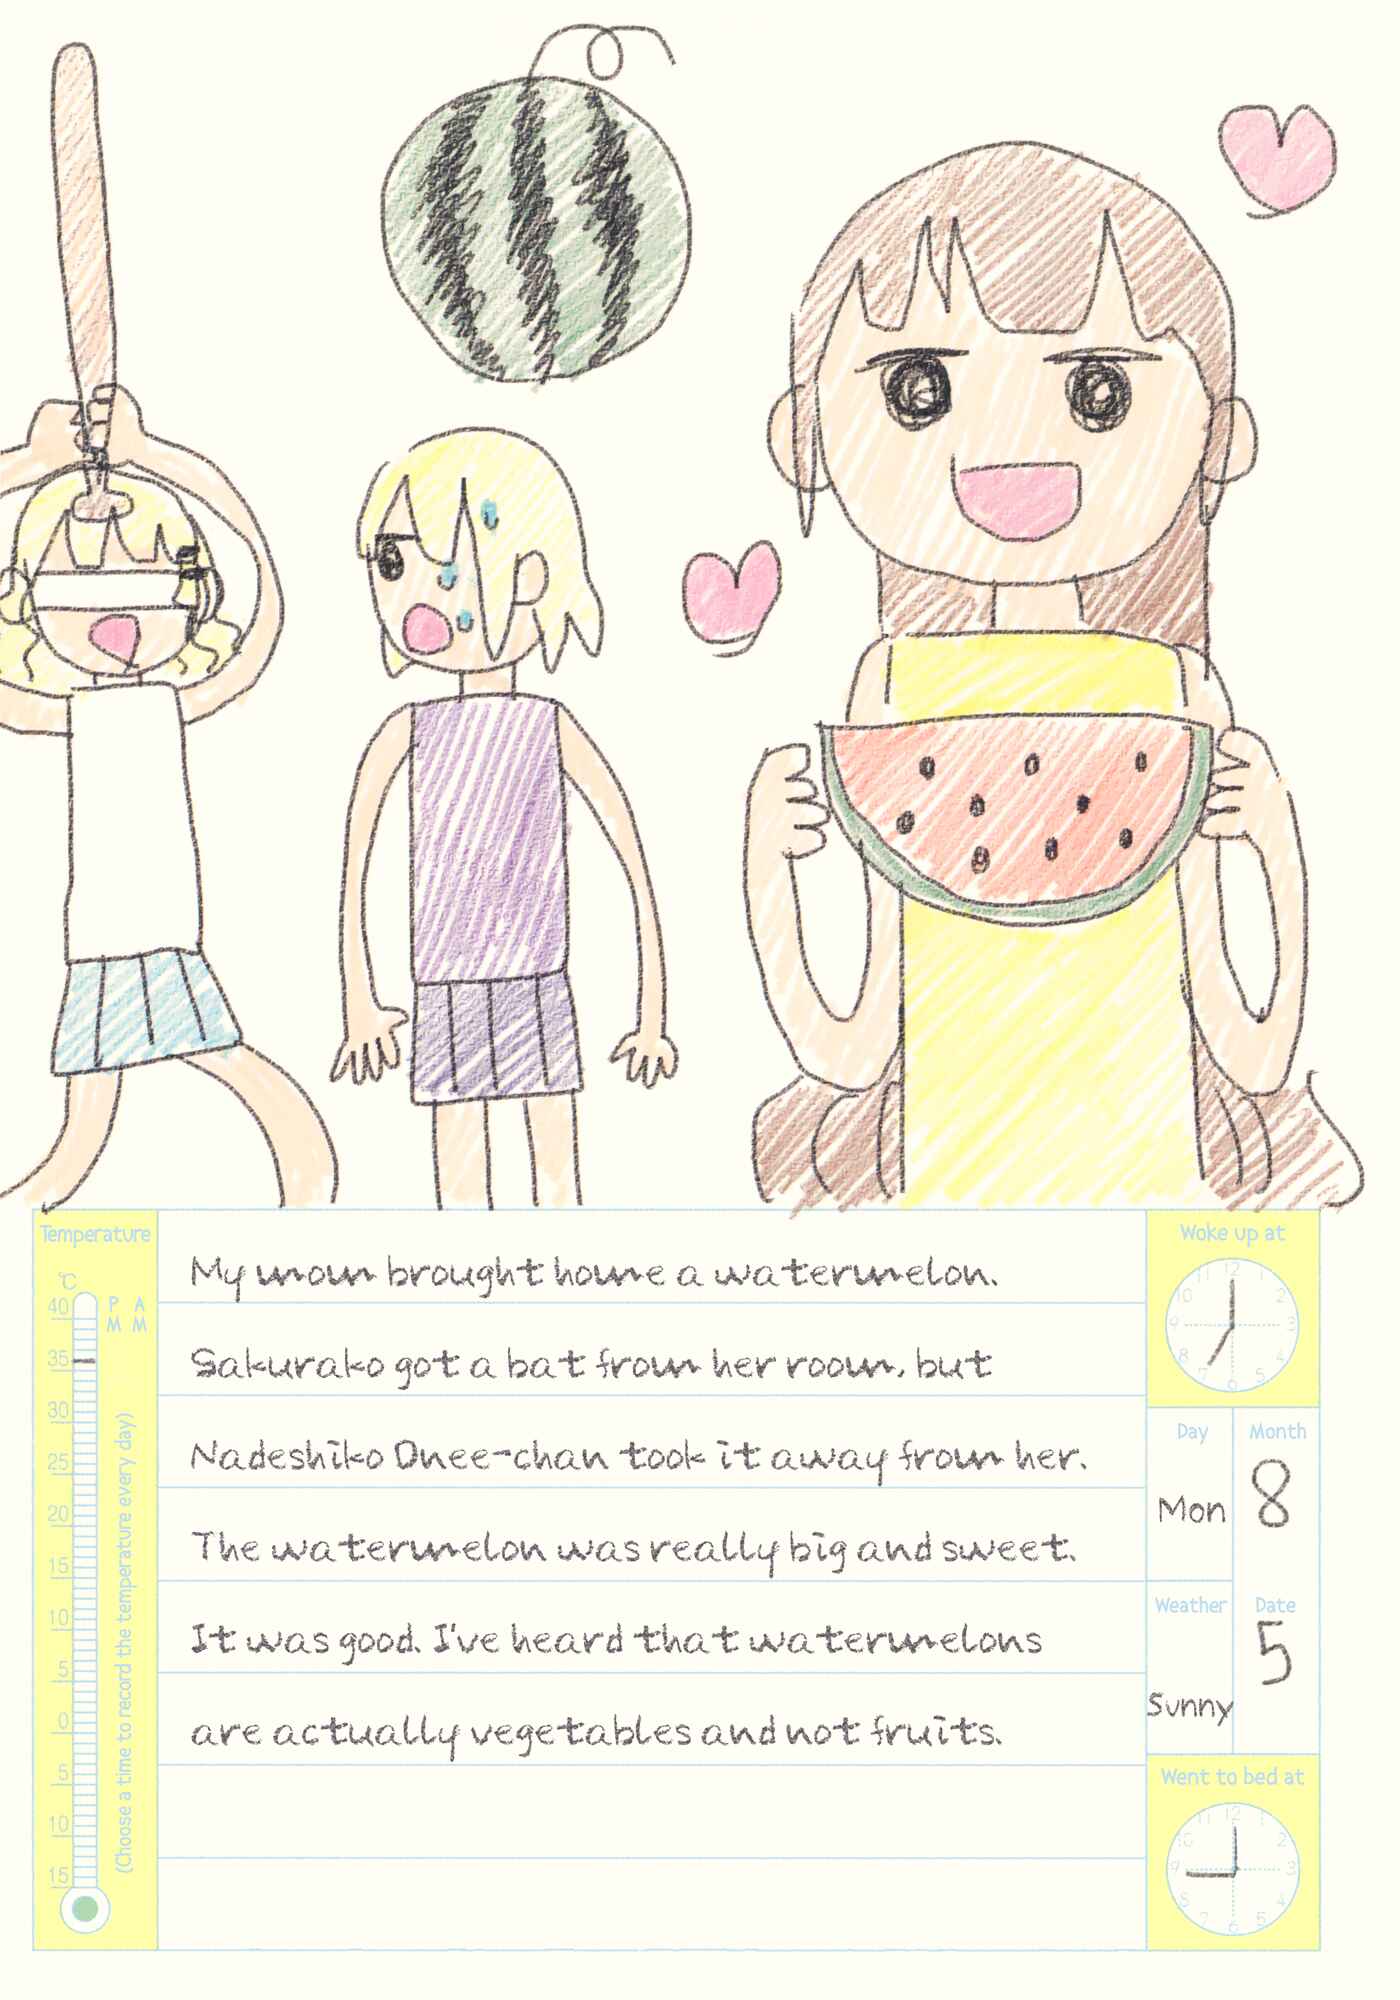 Temperature
°C
P A
M M
40
35
30
25
20
15
10
5
0
5
10
15
(Choose a time to record the temperature every day)
My mom brought home a watermelon.
Sakurako got a bat from her room, but
Nadeshiko Onee-chan took it away from her.
The watermelon was really big and sweet.
It was good. I've heard that watermelons
are actually vegetables and not fruits.
Woke up at
12 1 2 3 4 5 6 7 8 9 10 11
Day Month
Mon 8
Weather Date
Sunny 5
Went to bed at
12 1 2 3 4 5 6 7 8 9 10 11